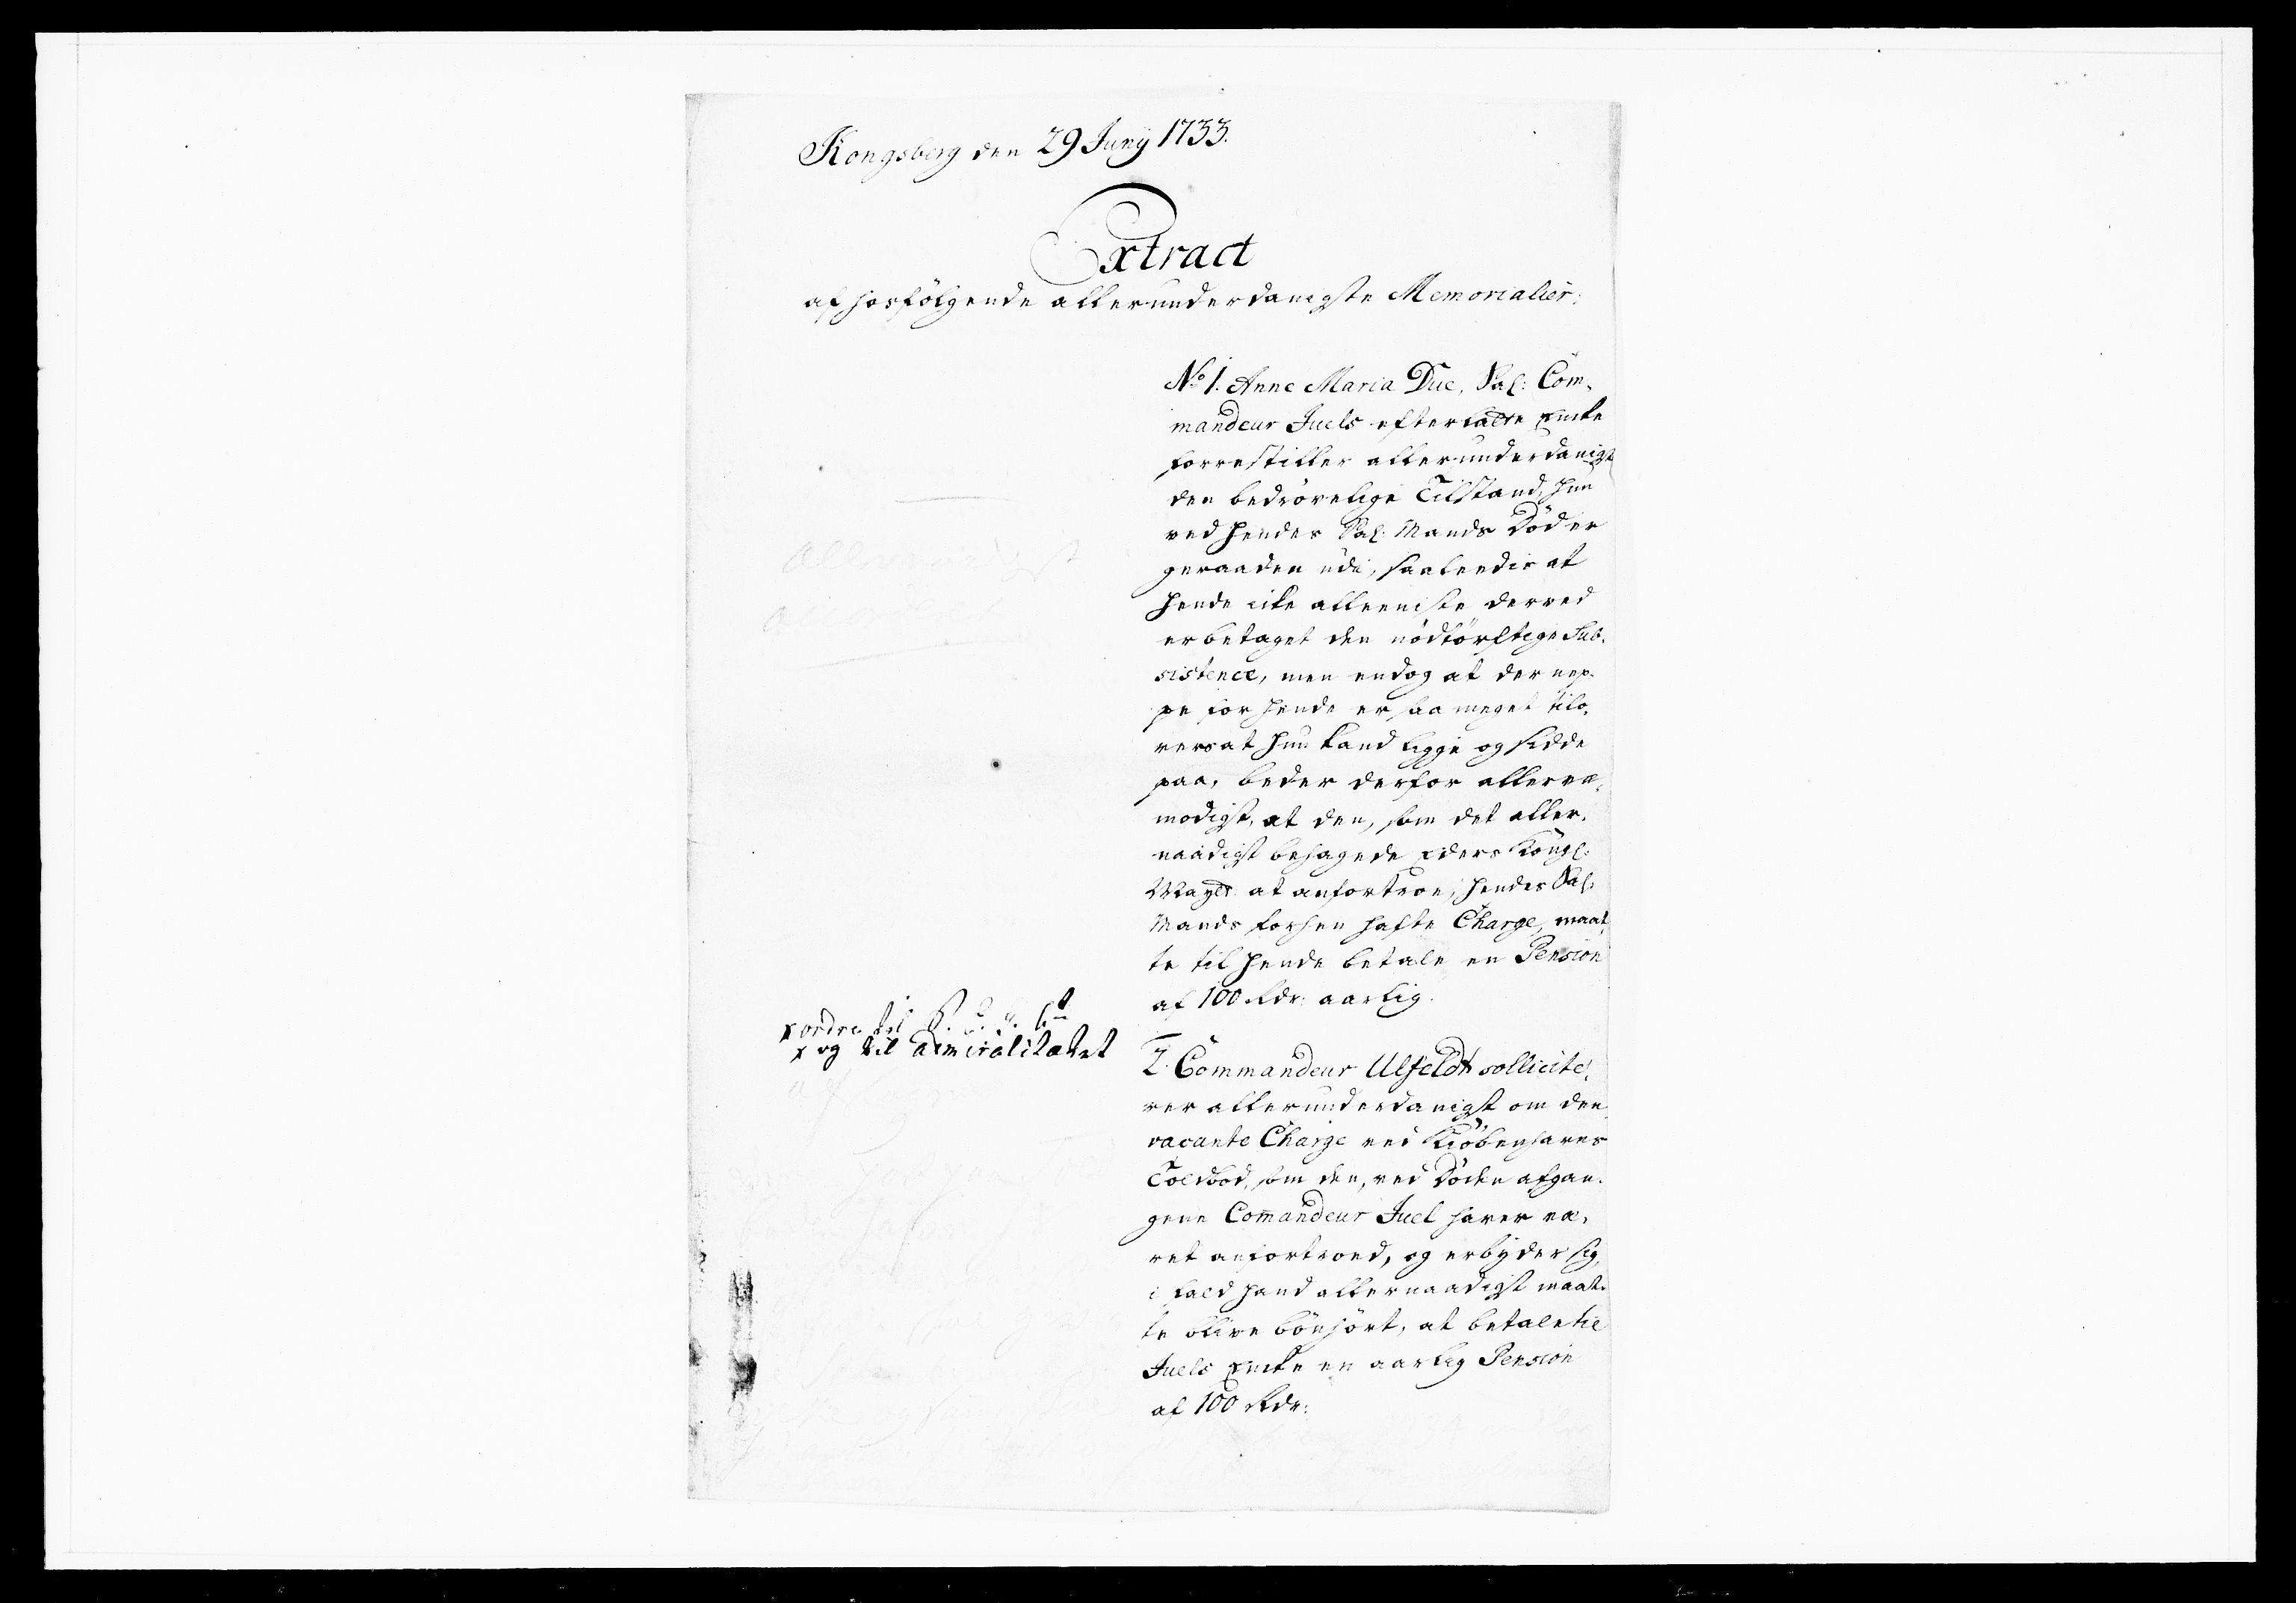 Kongsberg den 29 Juny 1733.
Extract
af hosfölgende allerunderdanigste Memorialier:
No 1. Anne Maria Due, Sal: Com-
mandeur Juels efterladte Encke
forrestiller allerunderdanigst
den bedrövelige Tilstand, hun
ved hendes Sal: Mands Död er
geraaden udi, saaleedis at
hende icke alleeniste derved
er betaget den nödtörftige Sub-
sistence, men endog at der nep-
pe for hende er saa meget tilo-
vers at hun kand ligge og sidde
paa, beder derfor allerve-
modigst, at den, som det aller-
naadigst behagede Eders Köngl:
Mayts: at anfortroe, hendes Sal:
Mands forhen hafte Charge, maat-
te til hende betale en Pension
af 100 Rdr: aarlig.
ordre til
og til admiralitætet
2. Commandeur Ulfeldt sollicite-
rer allerunderdanigst om den
vacante Charge ved Kiöbenhavns
Toldbod, som den, ved Döden afgan-
gene Comandeur Juel haver væ-
ret anfortroed, og erbyder sig,
i fald hand allernaadigst maat-
te blive bönhört, at betale til
Juels Encke en aarlig Pension
af 100 Rdr: